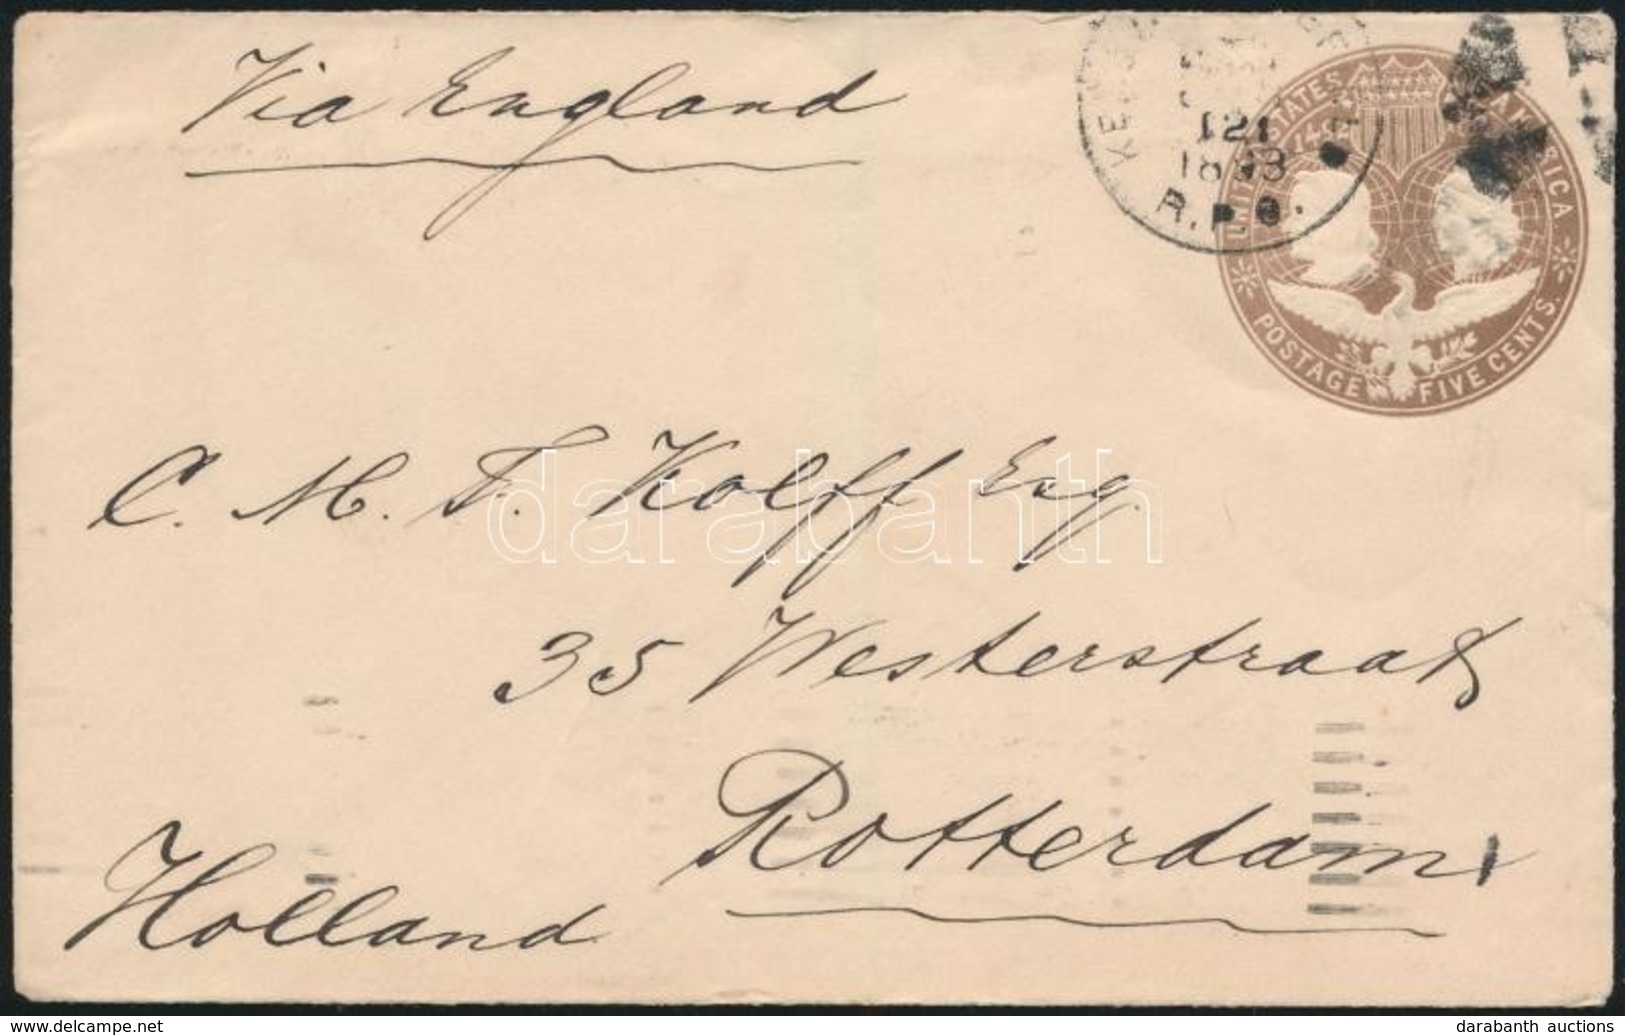 Via England
121
1893
R.P.O.
UNITED STATES OF AMERICA
1492
POSTAGE FIVE CENTS.
C. M. F. Kolff Esq.
35 Westerstraat
Rotterdam
Holland
darabanth
darabanth auctions
delcampe.net